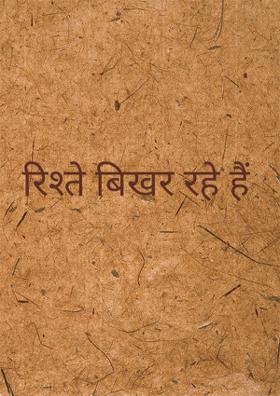 रिश्ते बिखर रहे हैं